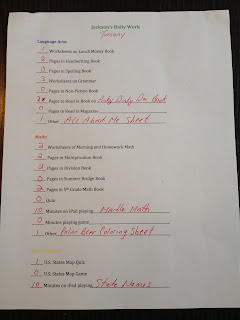 Jackson's Daily Work
Tuesday
Language Arts:
1 Worksheets on Lunch Money Book
2 Pages in Handwriting Book
0 Pages in Spelling Book
2 Worksheets on Grammar
0 Pages in Non-Fiction Book
20 Pages to Read in Book on Book
0 Pages to Read in Magazine
1 Other All About Me Sheet
Math:
2 Worksheets of Morning and Homework Math
2 Pages in Multiplication Book
0 Pages in Division Book
0 Pages in Summer Bridge Book
2 Pages in 5th Grade Math Book
0 Quiz
10 Minutes on iPad playing Marble Math
0 Minutes playing game
1 Other Polar Bear Coloring Sheet
1 U.S. States Map Quiz
0 U.S. States Map Game
10 Minutes on iPad playing State Names